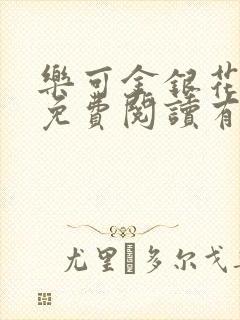 樂可金銀花
免費閱讀有
尤里 多尔戈